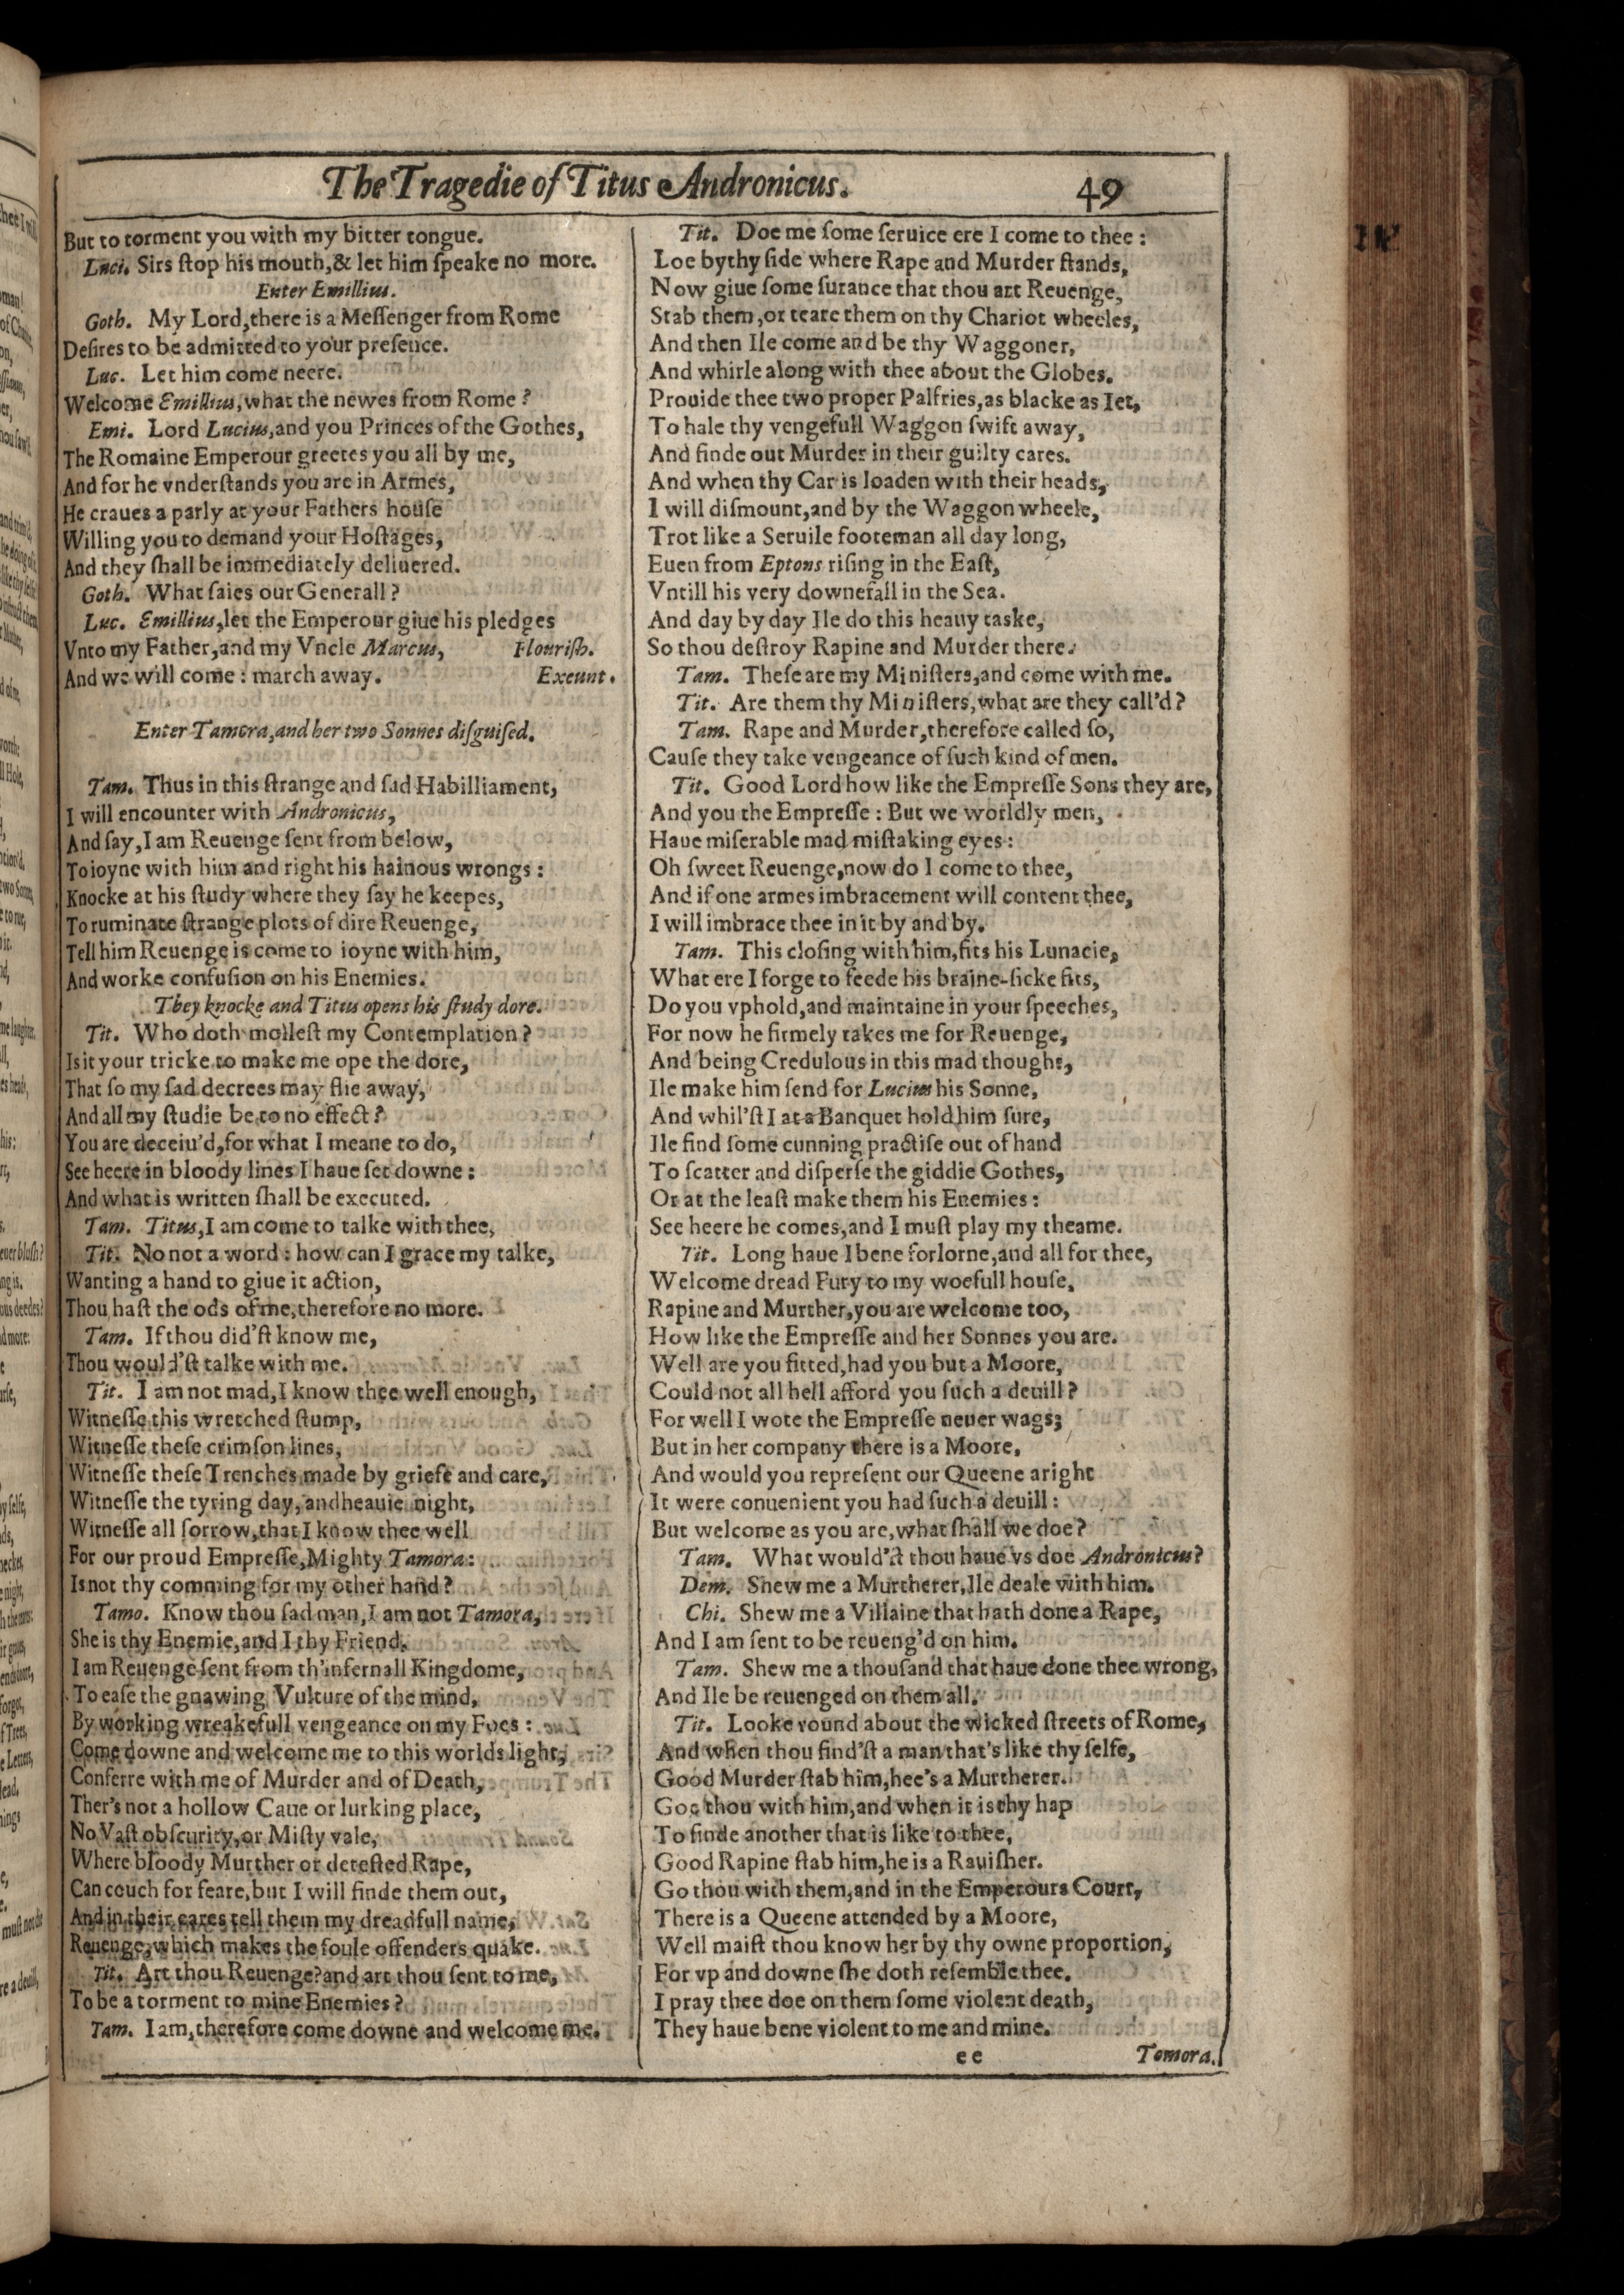 The Tragedie of Titus Andronicus. 49
But to torment you with my bitter tongue.
Luci. Sirs ſtop his mouth,& let him ſpeake no more.
Enter Emillius.
Goth. My Lord,there is a Meſſenger from Rome
Deſires to be admitted to your preſence.
Luc. Let him come neere.
Welcome Emillius,what the newes from Rome?
Emi. Lord Lucius,and you Princes of the Gothes,
The Romaine Emperour greetes you all by me,
And for he vnderſtands you are in Armes,
He craues a parly at your Fathers houſe
Willing you to demand your Hoſtages,
And they ſhall be immediately deliuered.
Goth. What ſaies our Generall?
Luc. Emillius,let the Emperour giue his pledges
Vnto my Father,and my Vncle Marcus, Flouriſh.
And we will come: march away. Exeunt.
Enter Tamora,and her two Sonnes diſguiſed.
Tam. Thus in this ſtrange and ſad Habilliament,
I will encounter with Andronicus,
And ſay,I am Reuenge ſent from below,
To ioyne with him and right his hainous wrongs:
Knocke at his ſtudy where they ſay he keepes,
To ruminate ſtrange plots of dire Reuenge,
Tell him Reuenge is come to ioyne with him,
And worke confuſion on his Enemies.
They knocke and Titus opens his ſtudy dore.
Tit. Who doth molleſt my Contemplation?
Is it your tricke to make me ope the dore,
That ſo my ſad decrees may flie away,
And all my ſtudie be to no effect?
You are deceiu'd,for what I meane to do,
See heere in bloody lines I haue ſet downe:
And what is written ſhall be executed.
Tam. Titus,I am come to talke with thee,
Tit. No not a word: how can I grace my talke,
Wanting a hand to giue it action,
Thou haſt the ods of me,therefore no more.
Tam. If thou did'ſt know me,
Thou would'ſt talke with me.
Tit. I am not mad,I know thee well enough,
Witneſſe this wretched ſtump,
Witneſſe theſe crimſon lines,
Witneſſe theſe Trenches made by griefe and care,
Witneſſe the tyring day, andheauie night,
Witneſſe all ſorrow,that I know thee well
For our proud Empreſſe,Mighty Tamora:
Is not thy comming for my other hand?
Tamo. Know thou ſad man,I am not Tamora,
She is thy Enemie,and I thy Friend,
I am Reuenge ſent from th'infernall Kingdome,
To eaſe the gnawing Vulture of the mind,
By working wreakefull vengeance on my Foes:
Come downe and welcome me to this worlds light,
Conferre with me of Murder and of Death,
Ther's not a hollow Caue or lurking place,
No Vaſt obſcurity,or Miſty vale,
Where bloody Murther or deteſted Rape,
Can couch for feare,but I will finde them out,
And in their eares tell them my dreadfull name,
Reuenge,which makes the foule offenders quake.
Tit. Art thou Reuenge?and art thou ſent to me,
To be a torment to mine Enemies?
Tam. I am,therefore come downe and welcome me.
Tit. Doe me ſome ſeruice ere I come to thee:
Loe by thy ſide where Rape and Murder ſtands,
Now giue ſome ſurance that thou art Reuenge,
Stab them,or teare them on thy Chariot wheeles,
And then Ile come and be thy Waggoner,
And whirle along with thee about the Globes.
Prouide thee two proper Palfries,as blacke as Iet,
To hale thy vengefull Waggon ſwift away,
And finde out Murder in their guilty cares.
And when thy Car is loaden with their heads,
I will diſmount,and by the Waggon wheele,
Trot like a Seruile footeman all day long,
Euen from Eptons riſing in the Eaſt,
Vntill his very downefall in the Sea.
And day by day Ile do this heauy taske,
So thou deſtroy Rapine and Murder there.
Tam. Theſe are my Miniſters,and come with me.
Tit. Are them thy Miniſters,what are they call'd?
Tam. Rape and Murder,therefore called ſo,
Cauſe they take vengeance of ſuch kind of men.
Tit. Good Lord how like the Empreſſe Sons they are,
And you the Empreſſe: But we worldly men,
Haue miſerable mad miſtaking eyes:
Oh ſweet Reuenge,now do I come to thee,
And if one armes imbracement will content thee,
I will imbrace thee in it by and by.
Tam. This cloſing with him,fits his Lunacie,
What ere I forge to feede his braine-ſicke fits,
Do you vphold,and maintaine in your ſpeeches,
For now he firmely takes me for Reuenge,
And being Credulous in this mad thought,
Ile make him ſend for Lucius his Sonne,
And whil'ſt I at a Banquet hold him ſure,
Ile find ſome cunning practiſe out of hand
To ſcatter and diſperſe the giddie Gothes,
Or at the leaſt make them his Enemies:
See heere he comes,and I muſt play my theame.
Tit. Long haue I bene forlorne,and all for thee,
Welcome dread Fury to my woefull houſe,
Rapine and Murther,you are welcome too,
How like the Empreſſe and her Sonnes you are.
Well are you fitted,had you but a Moore,
Could not all hell afford you ſuch a deuill?
For well I wote the Empreſſe neuer wags;
But in her company there is a Moore,
And would you repreſent our Queene aright
It were conuenient you had ſuch a deuill:
But welcome as you are,what ſhall we doe?
Tam. What would'ſt thou haue vs doe Andronicus?
Dem. Shew me a Murtherer,Ile deale with him.
Chi. Shew me a Villaine that hath done a Rape,
And I am ſent to be reueng'd on him.
Tam. Shew me a thouſand that haue done thee wrong,
And Ile be reuenged on them all.
Tit. Looke round about the wicked ſtreets of Rome,
And when thou find'ſt a man that's like thy ſelfe,
Good Murder ſtab him,hee's a Murtherer.
Goe thou with him,and when it is thy hap
To finde another that is like to thee,
Good Rapine ſtab him,he is a Rauiſher.
Go thou with them,and in the Emperours Court,
There is a Queene attended by a Moore,
Well maiſt thou know her by thy owne proportion,
For vp and downe ſhe doth reſemble thee.
I pray thee doe on them ſome violent death,
They haue bene violent to me and mine.
ee Tomora.